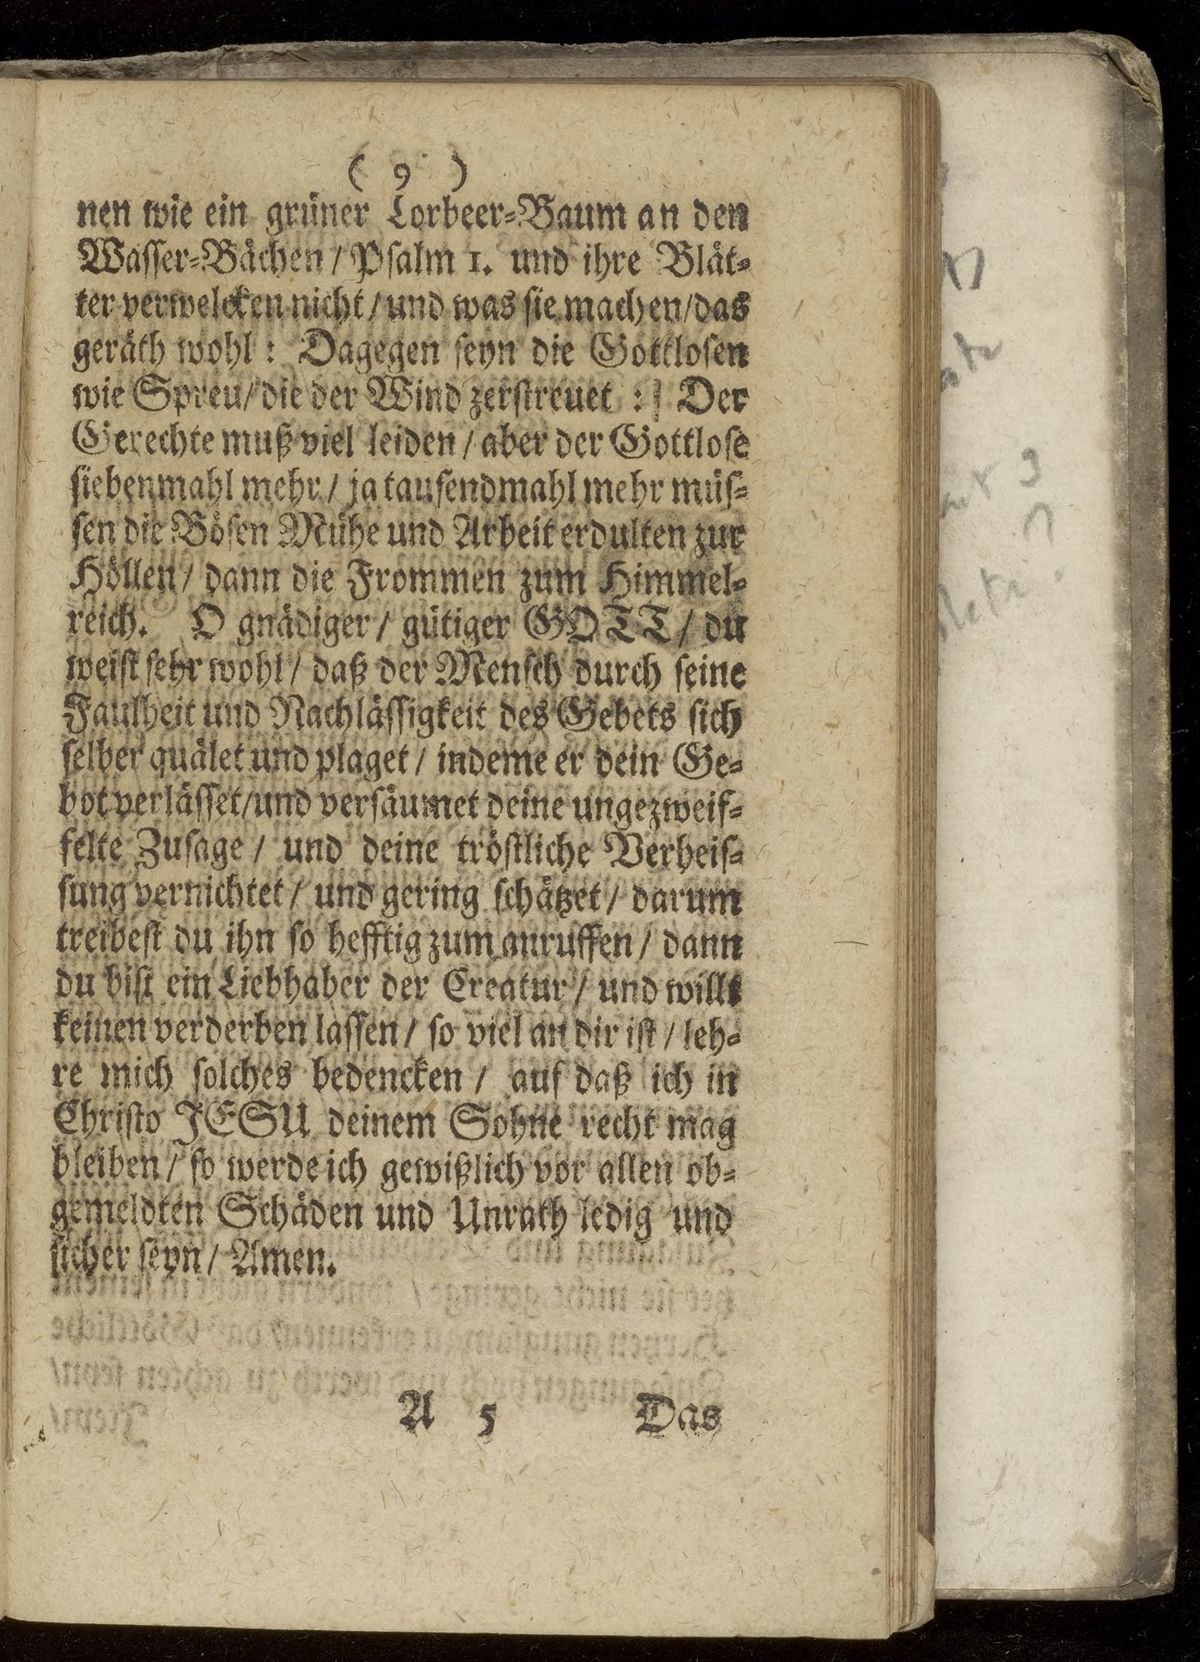 ( 9 )
nen wie ein grüner Lorbeer-Baum an den
Wasser-Bächen / Psalm 1. und ihre Blät-
ter verwelcken nicht / und was sie machen / das
geräth wohl : Dagegen seyn die Gottlosen
wie Spreu / die der Wind zerstreuet : | Der
Gerechte muß viel leiden / aber der Gottlose
siebenmahl mehr / ja tausendmahl mehr müs-
sen die Bösen Mühe und Arbeit erdulten zur
Höllen / dann die Frommen zum Himmel-
reich. O gnädiger / gütiger GOTT / du
weist sehr wohl / daß der Mensch durch seine
Faulheit und Nachlässigkeit des Gebets sich
selber quälet und plaget / indeme er dein Ge-
bot verlässet / und versäumet deine ungezweif-
felte Zusage / und deine tröstliche Verheis-
sung vernichtet / und gering schätzet / darum
treibest du ihn so hefftig zum anruffen / dann
du bist ein Liebhaber der Creatur / und willt
keinen verderben lassen / so viel an dir ist / leh-
re mich solches bedencken / auf daß ich in
Christo JESU deinem Sohne recht mag
bleiben / so werde ich gewißlich vor allen ob-
gemeldten Schäden und Unrath ledig und
sicher seyn / Amen.
A 5 Das